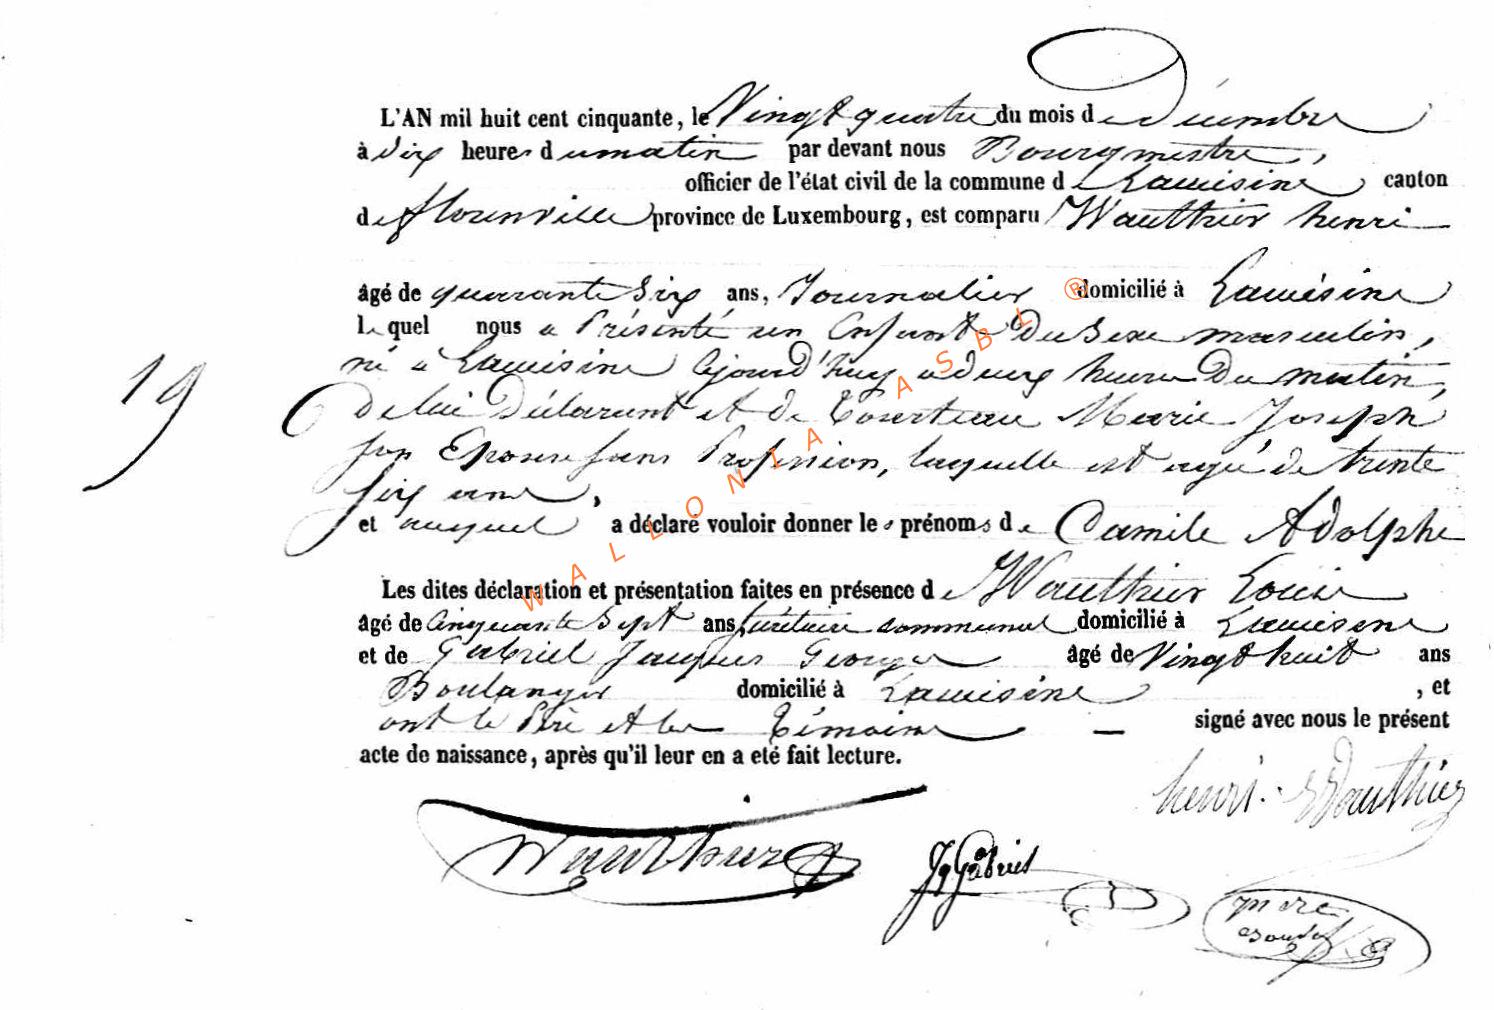 L'AN mil huit cent cinquante, le Vingt quatre du mois de Décembre
à dix heures du matin par devant nous Bourgmestre,
officier de l'état civil de la commune de Lacuisine canton
de florenville province de Luxembourg, est comparu Wauthier henri
âgé de quarante Six ans, Journalier domicilié à Lacuisine
le quel nous a Présenté un Enfant Du Sexe masculin,
né à Lacuisine ajourd'huy a deux heures Du matin,
19
de lui Déclarant et de Marie Joseph
son Epouse sans Profession, laquelle est agée de trente
six ans,
et auquel a déclaré vouloir donner les prénoms de Camile Adolphe
Les dites déclaration et présentation faites en présence de Wauthier Louis
âgé de Cinquante Sept ans, Sécrétaire communal domicilié à Lacuisine
et de Gabriel Jacques George âgé de Vingt huit ans
Boulanger domicilié à Lacuisine , et
ont le Père et les Témoins signé avec nous le présent
acte de naissance, après qu'il leur en a eté fait lecture.
henri Wauthier
Wauthier
Jg Gabriel
WALLONIA ASBL ®